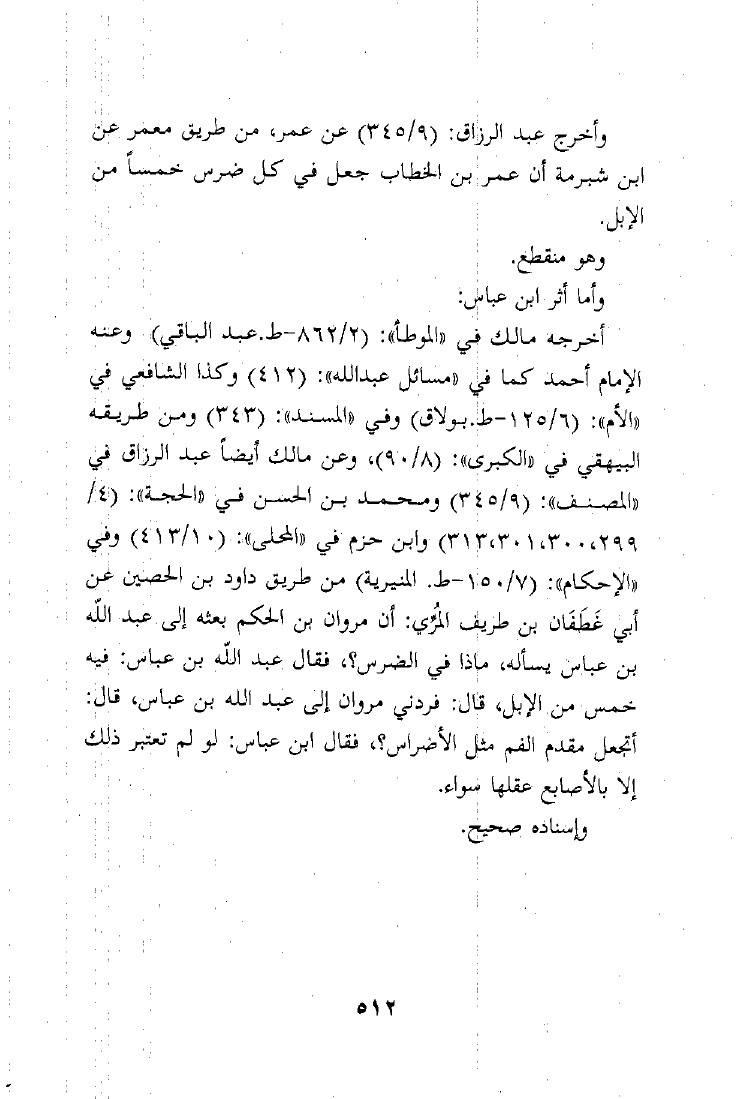 وأخرج عبد الرزاق: (٣٤٥/٩) عن عمر، من طريق معمر عن
ابن شبرمة أن عمر بن الخطاب جعل في كل ضرس خمساً من
الإبل.
وهو منقطع.
وأما أثر ابن عباس:
أخرجه مالك في «الموطأ»: (٨٦٢/٢-ط.عبد الباقي) وعنه
الإمام أحمد كما في «مسائل عبدالله»: (٤١٢) وكذا الشافعي في
«الأم»: (١٢٥/٦-ط.بولاق) وفي «المسند»: (٣٤٣) ومن طريقه
البيهقي في «الكبرى»: (٩٠/٨)، وعن مالك أيضاً عبد الرزاق في
«المصنف»: (٣٤٥/٩) ومحمد بن الحسن في «الحجة»: (٤/
٢٩٩،٣٠٠،٣٠١،٣١٣) وابن حزم في «المحلى»: (٤١٣/١٠) وفي
«الإحكام»: (١٥٠/٧-ط. المنيرية) من طريق داود بن الحصين عن
أبي غَطَفَان بن طريف المُرِّي: أن مروان بن الحكم بعثه إلى عبد الله
بن عباس يسأله، ماذا في الضرس؟، فقال عبد الله بن عباس: فيه
خمس من الإبل، قال: فردني مروان إلى عبد الله بن عباس، قال:
أتجعل مقدم الفم مثل الأضراس؟، فقال ابن عباس: لو لم تعتبر ذلك
إلا بالأصابع عقلها سواء.
وإسناده صحيح.
٥١٢